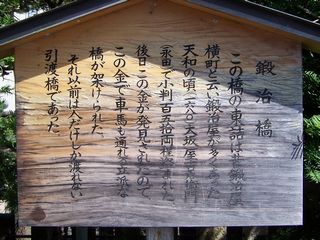 鍛治橋
この橋の東詰は昔鍛治屋
横町と云い鍛治屋が多くあった
天和の頃(一六八一)大坂屋吉右衛門
永田で小判五拾両程盗まれた
後日この金が発見されたので
この金で車馬も通れる立派な
橋が架けられた。
それ以前は人だけしか渡れない
引渡橋であった。